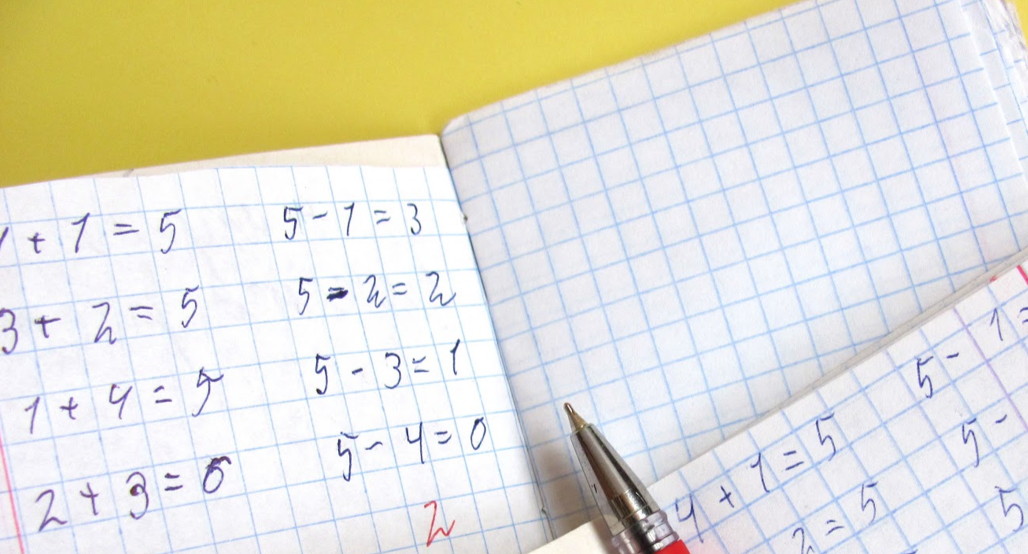 + 1 = 5 5 - 1 = 3
3 + 2 = 5 5 - 2 = 2
1 + 4 = 5 5 - 3 = 1
2 + 3 = 6 5 - 4 = 0
2
5 - 1 =
4 + 1 = 5 5 -
2 = 5 5